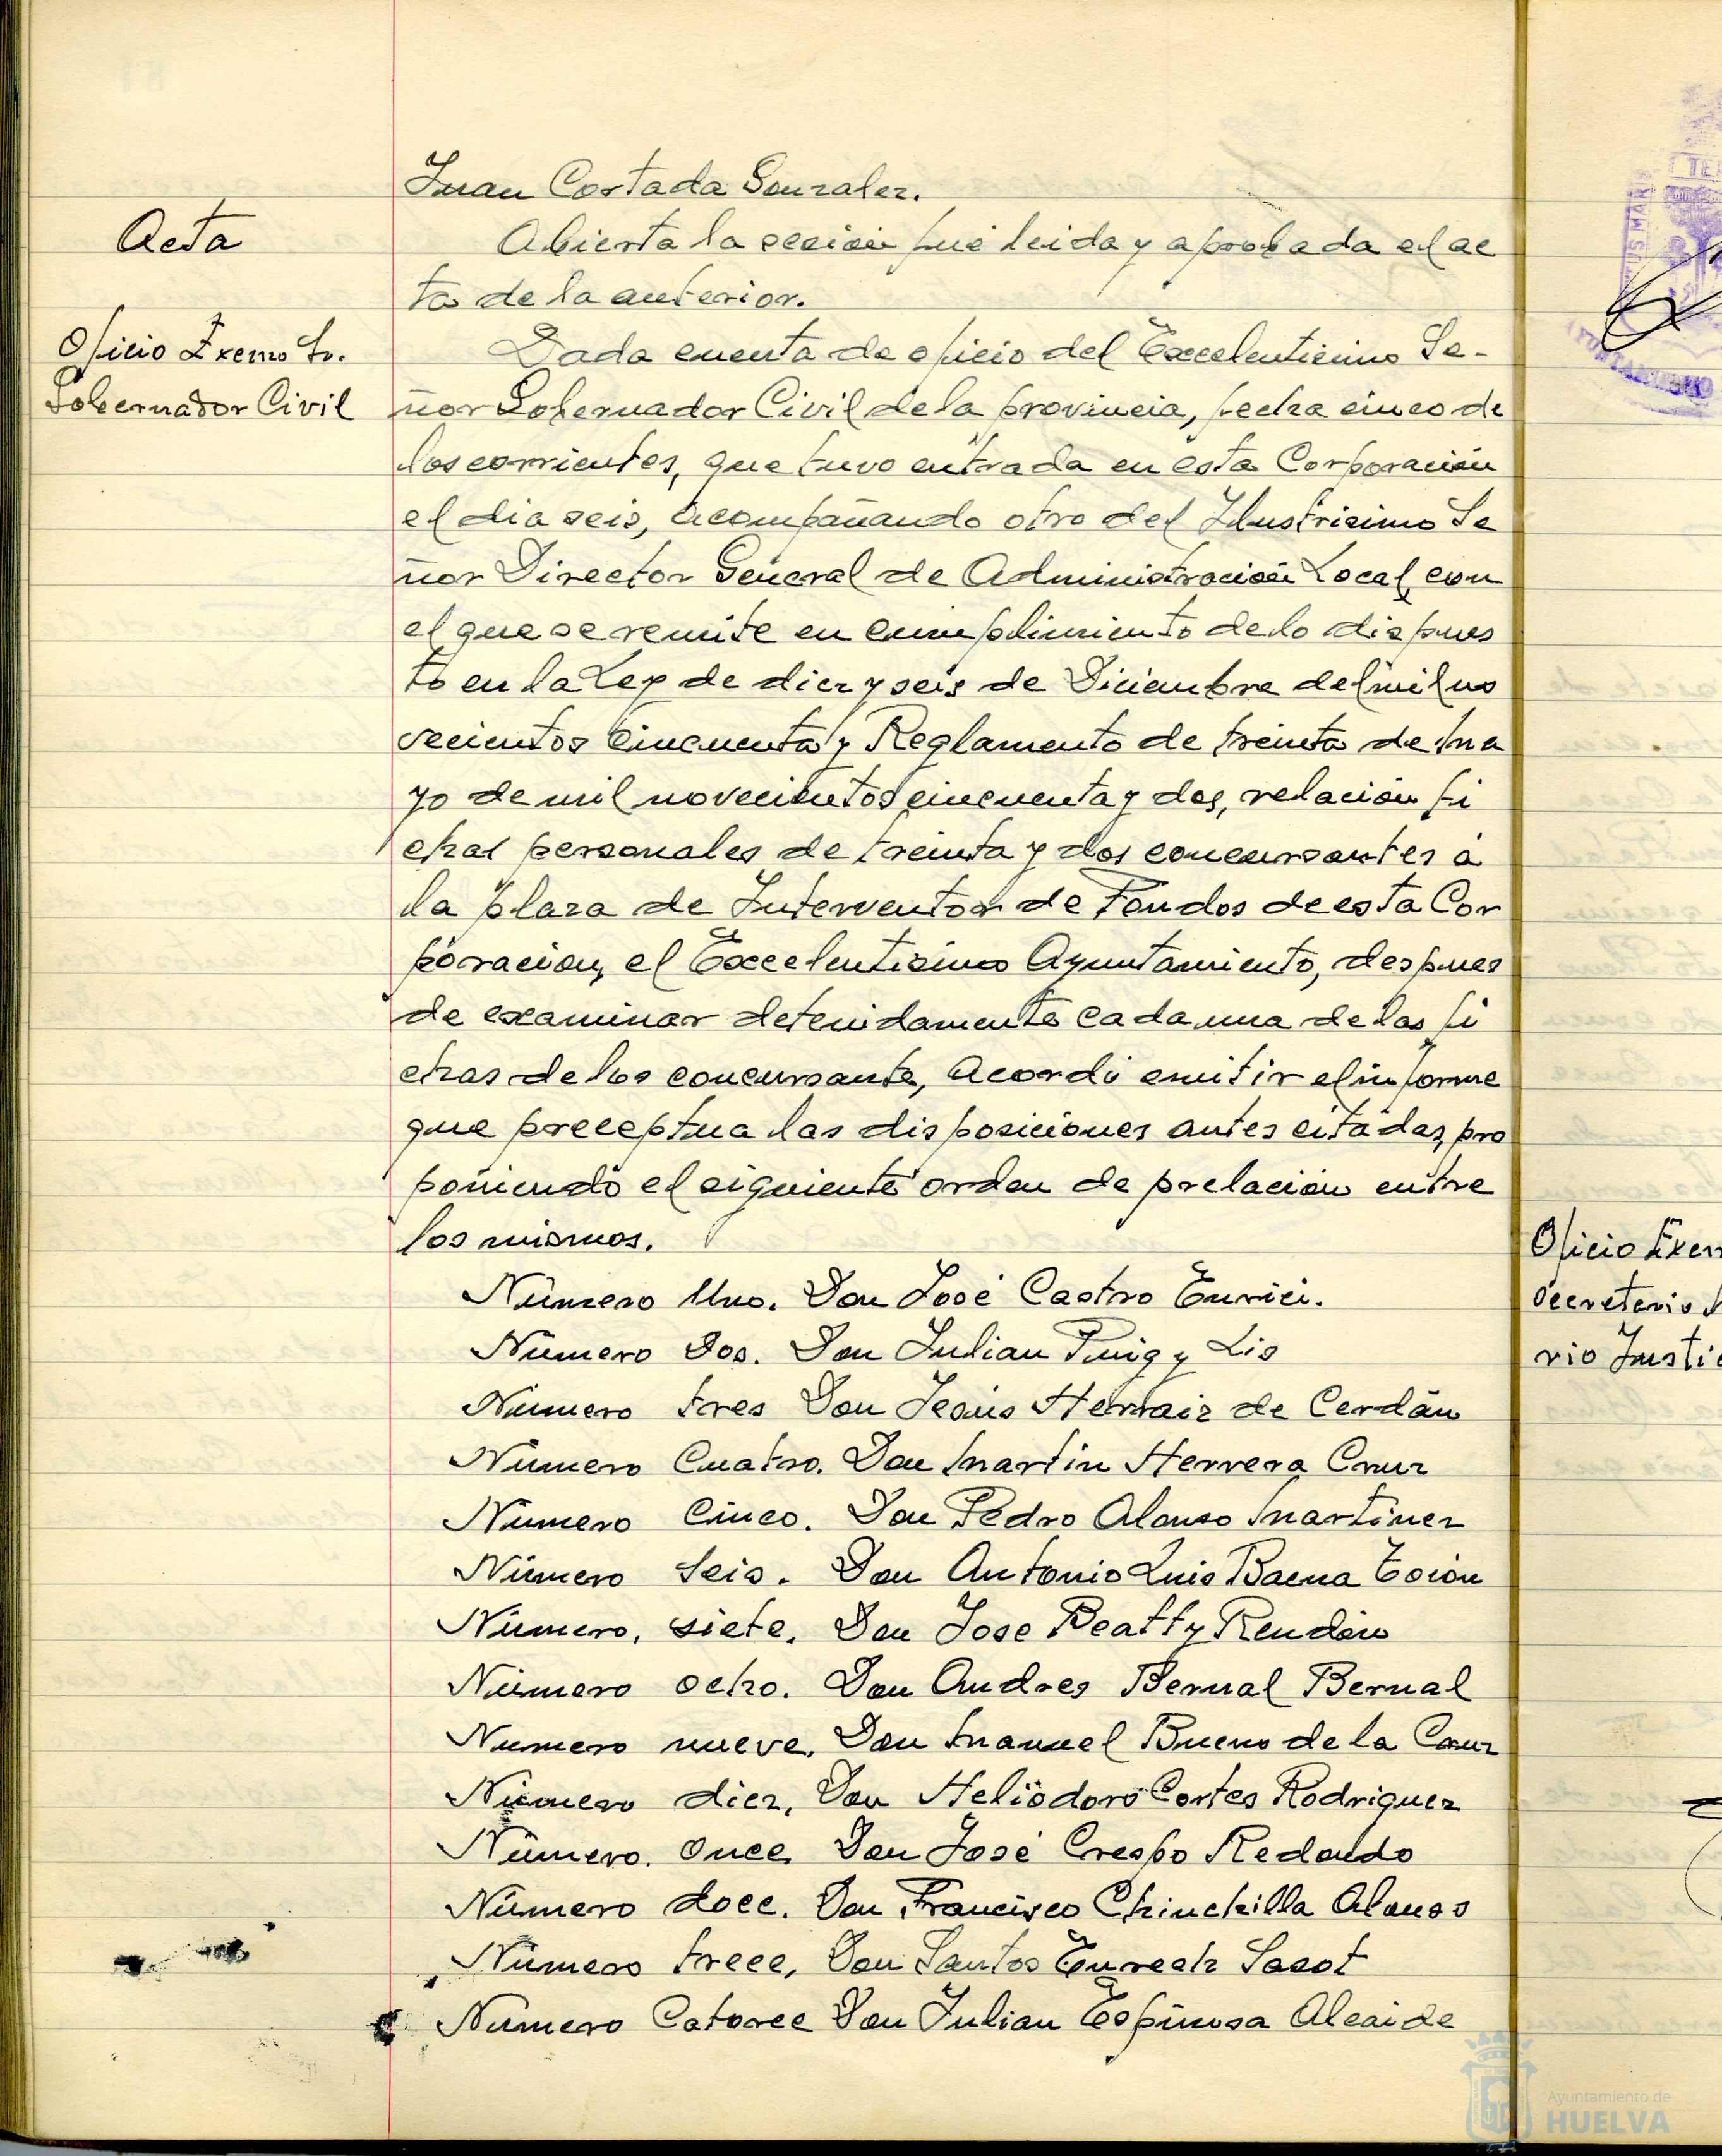 Juan Cortada Gonzalez.
Acta
Abierta la sesión fué leida y aprobada el ac
ta de la anterior.
Oficio Excmo Sr.
Gobernador Civil
Dada cuenta de oficio del Excelentisimo Se-
ñor Gobernador Civil de la provincia, fecha cinco de
los corrientes, que tuvo entrada en esta Corporación
el dia seis, acompañando otro del Ilustrisimo Se
ñor Director General de Administración Local, con
el que se remite en cumplimiento de lo dispues
to en la Ley de diez y seis de Diciembre de mil no
vecientos cincuenta y Reglamento de treinta de Ma
yo de mil novecientos cincuenta y dos, relación fi
chas personales de treinta y dos concursantes a
la plaza de Interventor de Fondos de esta Cor
poracion, el Excelentisimo Ayuntamiento, despues
de examinar detenidamente cada una de las fi
chas de los concursante, acordó emitir el informe
que preceptua las disposiciones antes citadas, pro
poniendo el siguiente orden de prelación entre
los mismos.
Número Uno. Don José Castro Eurici.
Número Dos. Don Julian Puig y Lis
Número tres Don Jesús Herraiz de Cerdán
Número Cuatro. Don Martin Herrera Cruz
Número Cinco. Don Pedro Alonso Martinez
Número Seis. Don Antonio Luis Baena Tocón
Número, siete. Don Jose Beatty Rendón
Número ocho. Don Andres Bernal Bernal
Numero nueve. Don Manuel Bueno de la Cruz
Número diez, Don Heliodoro Cortes Rodriguez
Número. Once. Don José Crespo Redondo
Número doce. Don Francisco Chinchilla Alonso
Número trece, Don Santos Eurech Sasot
Numero Catorce Don Julian Espinosa Alcaide
Oficio
Secretario
rio
Ayuntamiento de
HUELVA